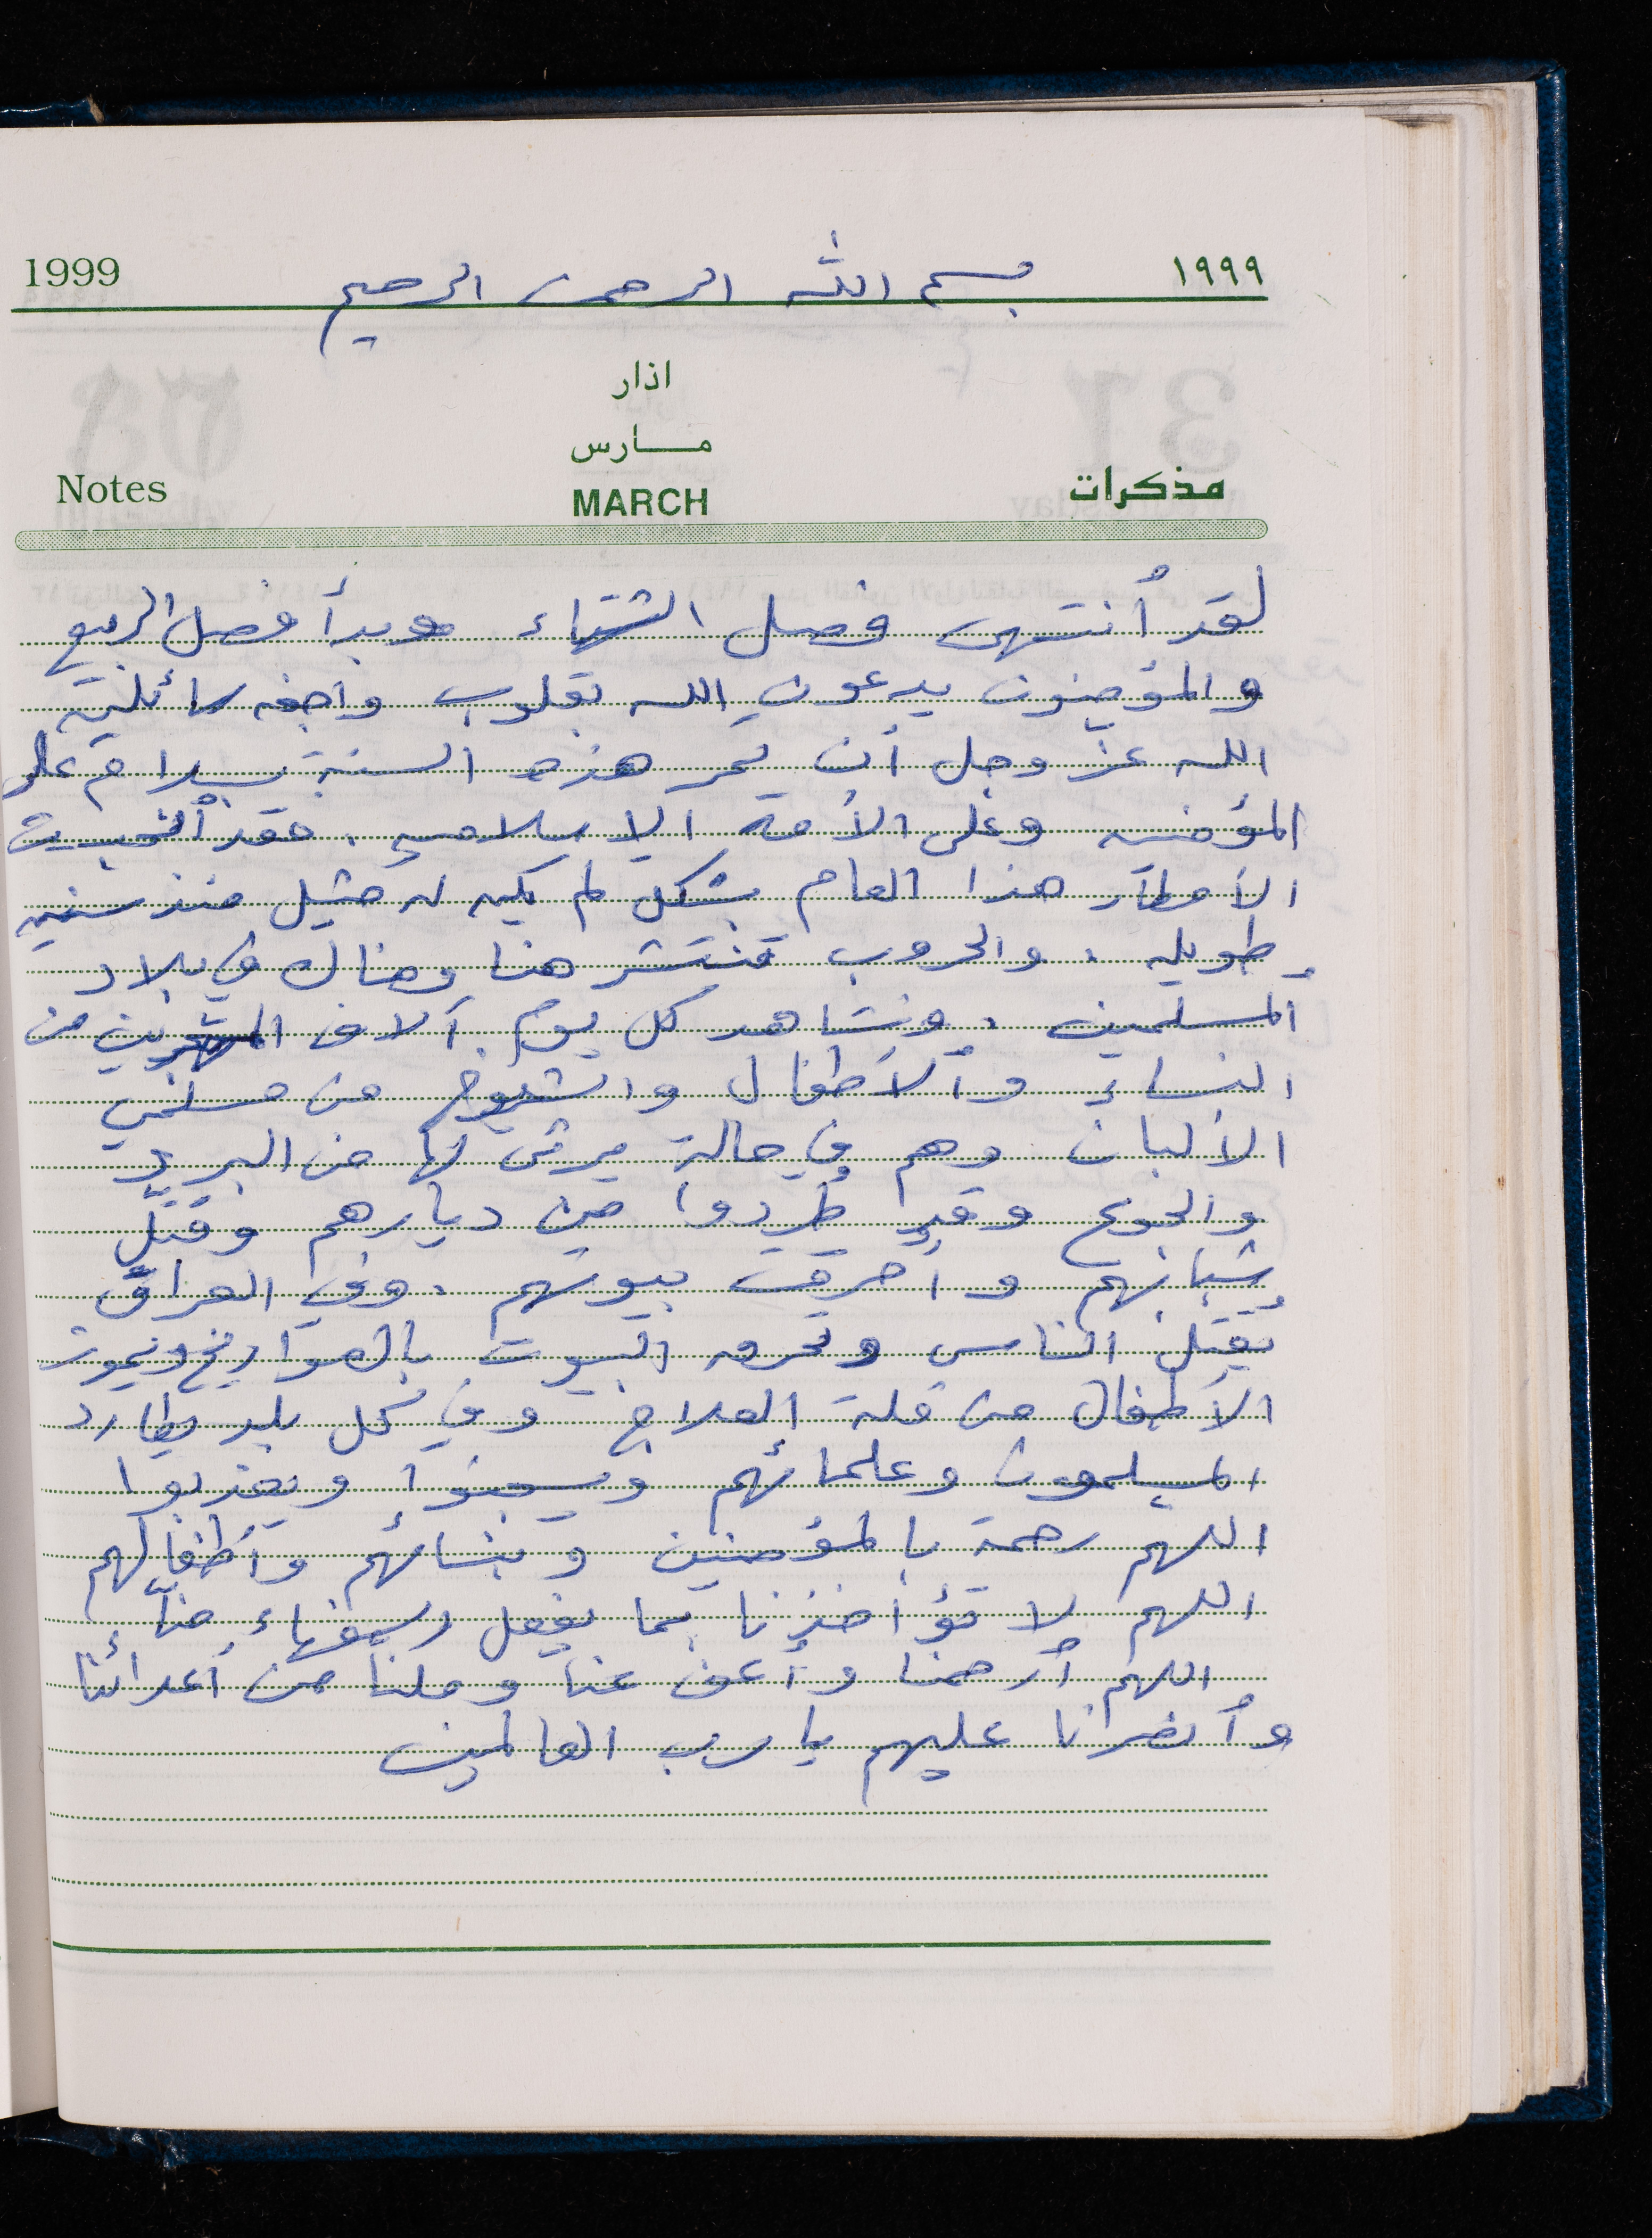 1999 بسم الله الرحمن الرحيم ١٩٩٩
اذار
مارس
Notes MARCH مذكرات
لقد أنتهى فصل الشتاء وبدأ فصل الربيع
والمؤمنون يدعون الله بقلوب واجفه سائلين
الله عزّ وجل أن تمر هذه السنة بسلام على
المؤمنين وعلى الأمة الإسلاميه. فقد أنحبست
الأمطار هذا العام بشكل لم يكن له مثيل منذ سنين
طويله. والحروب تنتشر هنا وهناك في بلاد
المسلمين. ونشاهد كل يوم آلاف المهجرين من
النساء والأطفال والشيوخ من مسلمي
الألبان وهم في حالة يرثى لها من البرد
والجوع وقد طُردوا من ديارهم وقُتل
شبانهم وأحرقت بيوتهم. وفي العراق
يُقتل الناس وتحرق البيوت بالصواريخ ويموت
الأطفال من قلة العلاج وفي كل بلد يطارد
المسلمون وعلمائهم ويسجنوا ويعذبوا
اللهم رحمة بالمؤمنين وبنسائهم وأطفالهم
اللهم لا تؤاخذنا بما يفعل السفهاء منّا
اللهم أرحمنا وأعف عنا من أعدائنا
وأنصرنا عليهم يا رب العالمين